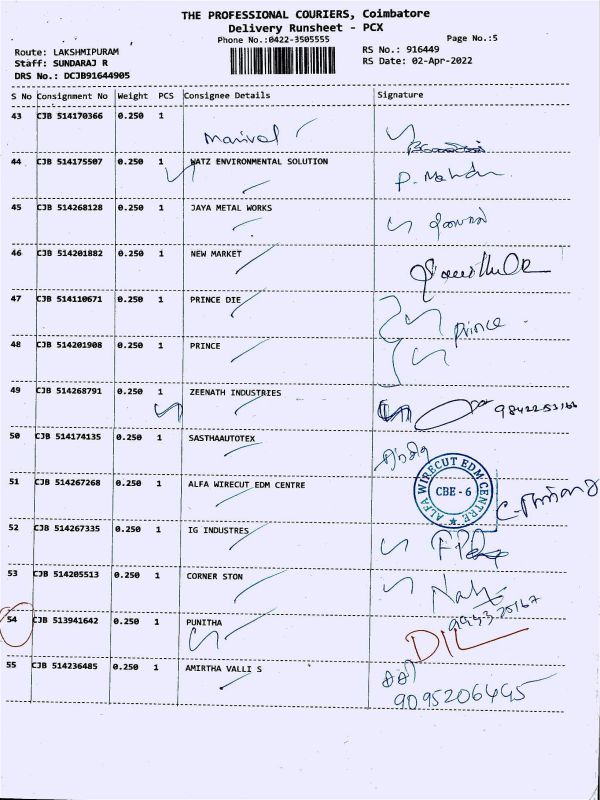 THE PROFESSIONAL COURIERS, Coimbatore
Delivery Runsheet - PCX
Phone No.:0422-3505555
Page No.:5
Route: LAKSHMIPURAM
Staff: SUNDARAJ R
DRS No.: DCJB91644905
RS No.: 916449
RS Date: 02-Apr-2022
S No Consignment No Weight PCS Consignee Details Signature
43 CJB 514170366 0.250 1
44 CJB 514175507 0.250 1 WATZ ENVIRONMENTAL SOLUTION
45 CJB 514268128 0.250 1 JAYA METAL WORKS
46 CJB 514201882 0.250 1 NEW MARKET
47 CJB 514110671 0.250 1 PRINCE DIE
Prince
48 CJB 514201908 0.250 1 PRINCE
49 CJB 514268791 0.250 1 ZEENATH INDUSTRIES
50 CJB 514174135 0.250 1 SASTHAAUTOTEX
51 CJB 514267268 0.250 1 ALFA WIRECUT EDM CENTRE
ALFA WIRECUT EDM CENTRE
CBE - 6
52 CJB 514267335 0.250 1 IG INDUSTRES
53 CJB 514205513 0.250 1 CORNER STON
54 CJB 513941642 0.250 1 PUNITHA
DIL
55 CJB 514236485 0.250 1 AMIRTHA VALLI S
9095206495